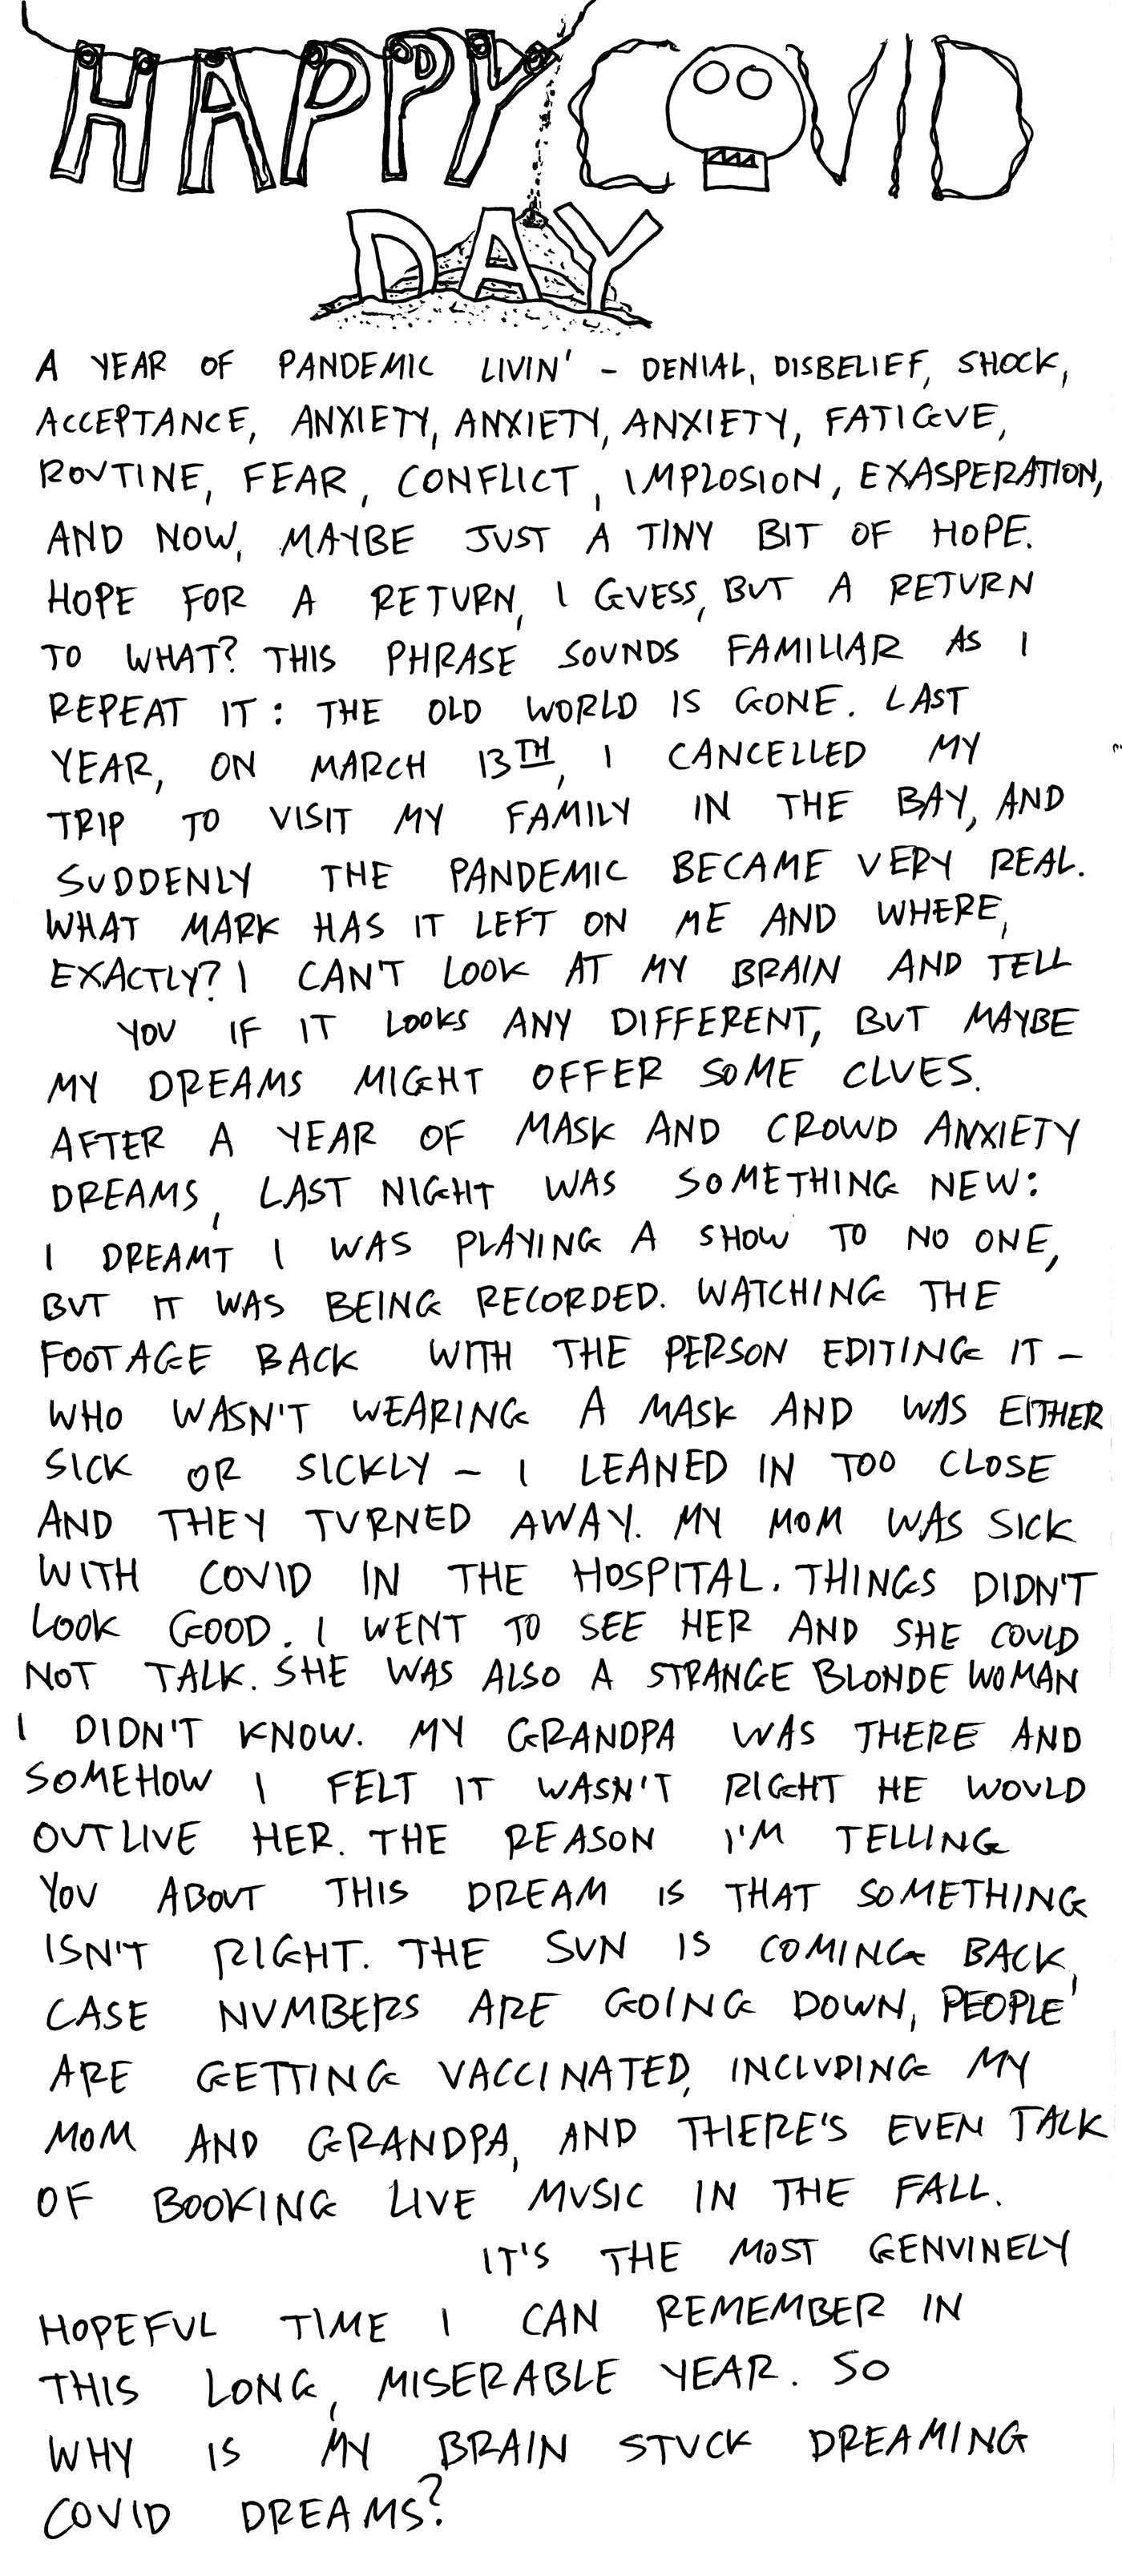 HAPPY COVID
DAY
A YEAR OF PANDEMIC LIVIN' - DENIAL, DISBELIEF, SHOCK,
ACCEPTANCE, ANXIETY, ANXIETY, ANXIETY, FATIGUE,
ROUTINE, FEAR, CONFLICT, IMPLOSION, EXASPERATION,
AND NOW, MAYBE JUST A TINY BIT OF HOPE.
HOPE FOR A RETURN, I GUESS, BUT A RETURN
TO WHAT? THIS PHRASE SOUNDS FAMILIAR AS I
REPEAT IT: THE OLD WORLD IS GONE. LAST
YEAR, ON MARCH 13TH, I CANCELLED MY
TRIP TO VISIT MY FAMILY IN THE BAY, AND
SUDDENLY THE PANDEMIC BECAME VERY REAL.
WHAT MARK HAS IT LEFT ON ME AND WHERE,
EXACTLY? I CAN'T LOOK AT MY BRAIN AND TELL
YOU IF IT LOOKS ANY DIFFERENT, BUT MAYBE
MY DREAMS MIGHT OFFER SOME CLUES.
AFTER A YEAR OF MASK AND CROWD ANXIETY
DREAMS, LAST NIGHT WAS SOMETHING NEW:
I DREAMT I WAS PLAYING A SHOW TO NO ONE,
BUT IT WAS BEING RECORDED. WATCHING THE
FOOTAGE BACK WITH THE PERSON EDITING IT -
WHO WASN'T WEARING A MASK AND WAS EITHER
SICK OR SICKLY - I LEANED IN TOO CLOSE
AND THEY TURNED AWAY. MY MOM WAS SICK
WITH COVID IN THE HOSPITAL. THINGS DIDN'T
LOOK GOOD. I WENT TO SEE HER AND SHE COULD
NOT TALK. SHE WAS ALSO A STRANGE BLONDE WOMAN
I DIDN'T KNOW. MY GRANDPA WAS THERE AND
SOMEHOW I FELT IT WASN'T RIGHT HE WOULD
OUTLIVE HER. THE REASON I'M TELLING
YOU ABOUT THIS DREAM IS THAT SOMETHING
ISN'T RIGHT. THE SUN IS COMING BACK,
CASE NUMBERS ARE GOING DOWN, PEOPLE
ARE GETTING VACCINATED, INCLUDING MY
MOM AND GRANDPA, AND THERE'S EVEN TALK
OF BOOKING LIVE MUSIC IN THE FALL.
IT'S THE MOST GENUINELY
HOPEFUL TIME I CAN REMEMBER IN
THIS LONG, MISERABLE YEAR. SO
WHY IS MY BRAIN STUCK DREAMING
COVID DREAMS?